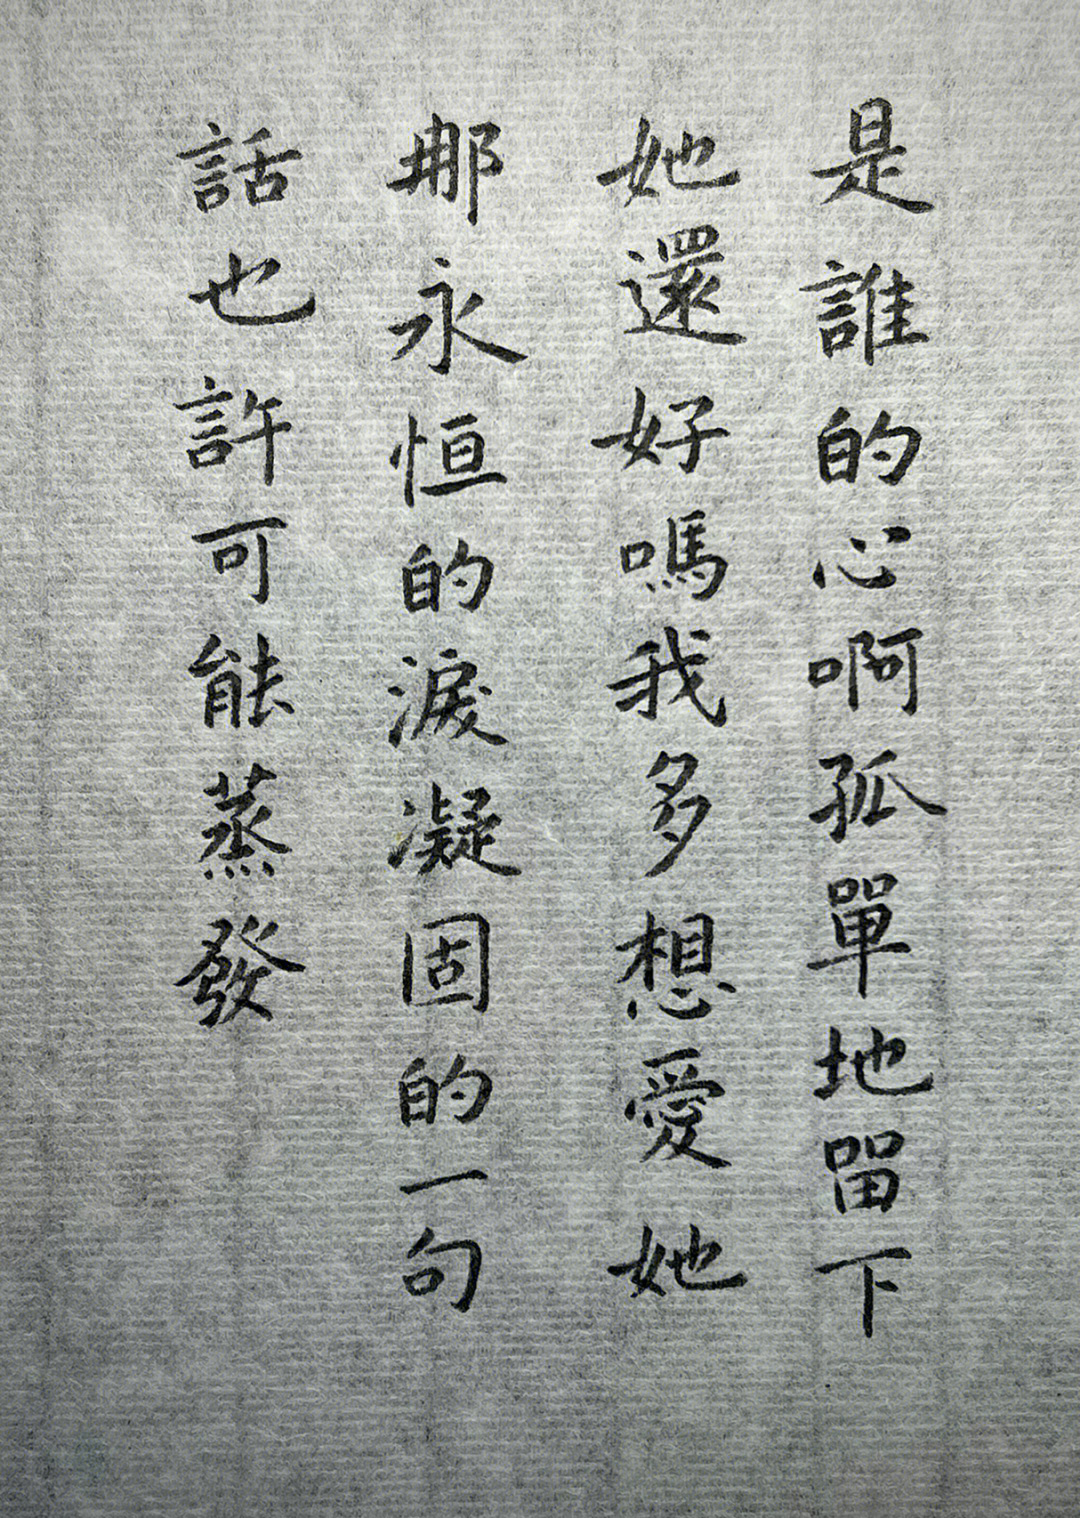 是誰的心啊孤單地留下
她還好嗎我多想愛她
那永恒的淚凝固的一句
話也許可能蒸發